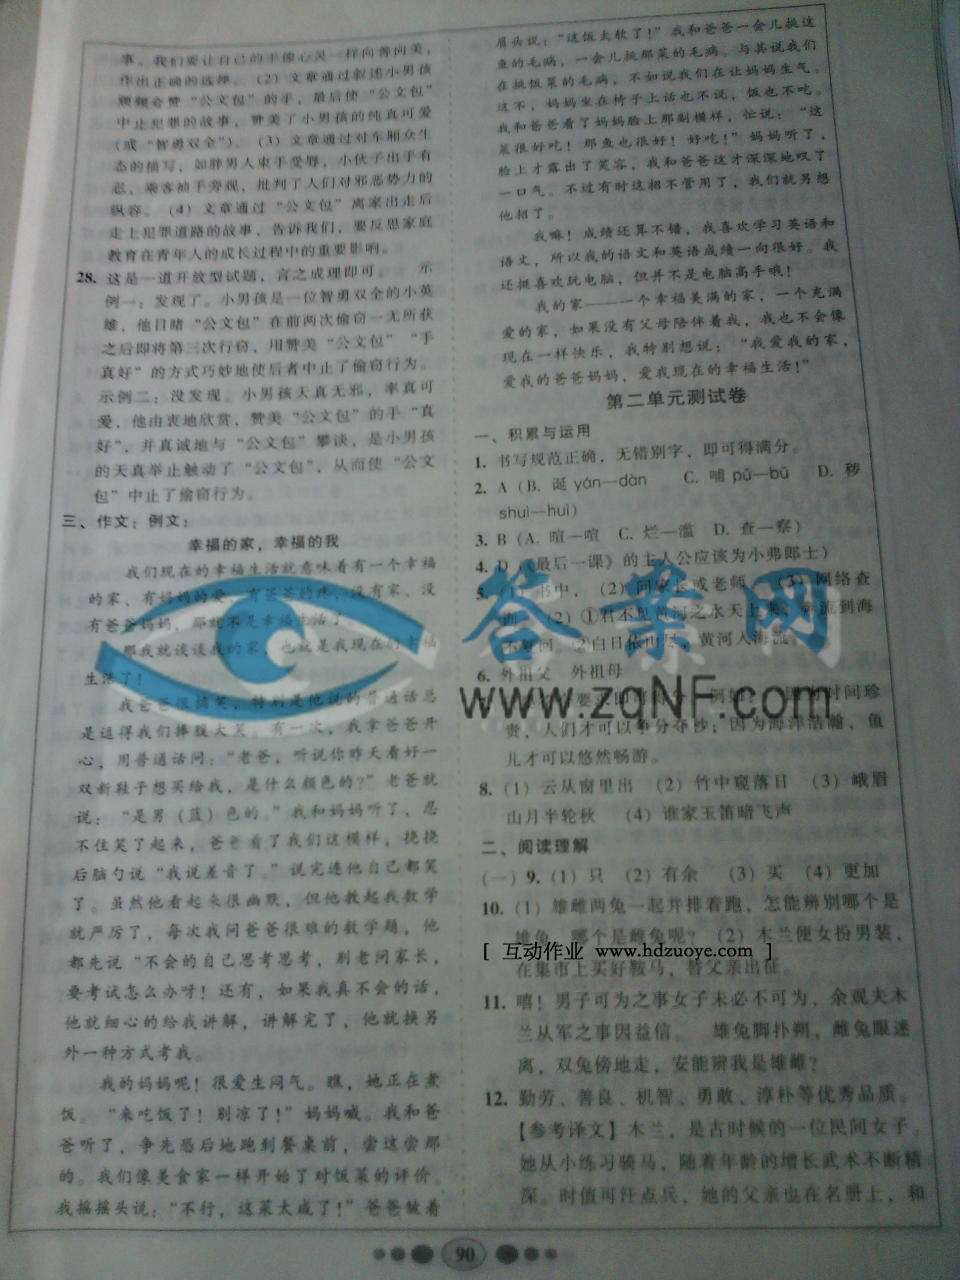 事。我们要让自己的手像心灵一样向善向美，
作出正确的选择。（2）文章通过叙述小男孩
频频夸赞“公文包”的手，最后使“公文包”
中止犯罪的故事，赞美了小男孩的纯真可爱
（或“智勇双全”）。（3）文章通过对车厢众生
态的描写，如胖男人束手受辱，小伙子出手有
忌，乘客袖手旁观，批判了人们对邪恶势力的
纵容。（4）文章通过“公文包”离家出走后
走上犯罪道路的故事，告诉我们，要反思家庭
教育在青年人的成长过程中的重要影响。
28. 这是一道开放型试题，言之成理即可。 示
例一：发现了。小男孩是一位智勇双全的小英
雄，他目睹“公文包”在前两次偷窃一无所获
之后即将第三次行窃，用赞美“公文包”“手
真好”的方式巧妙地使后者中止了偷窃行为。
示例二：没发现。小男孩天真无邪，率真可
爱，他由衷地欣赏，赞美“公文包”的手“真
好”，并真诚地与“公文包”攀谈，是小男孩
的天真举止触动了“公文包”，从而使“公文
包”中止了偷窃行为。
三、作文：例文：
幸福的家，幸福的我
我们现在的幸福生活就意味着有一个幸福
的家、有妈妈的爱、有爸爸的疼，没有家、没
有爸爸妈妈，那就不是幸福生活了。
那我就谈谈我的家，也就是我现在的幸福
生活了！
我爸爸很搞笑，特别是他说的普通话总
是逗得我们捧腹大笑。有一次，我拿爸爸开
心，用普通话问：“老爸，听说你昨天看好一
双新鞋子想买给我，是什么颜色的？”老爸就
说：“是男（蓝）色的。”我和妈妈听了，忍
不住笑了起来，爸爸看了我们这模样，挠挠
后脑勺说“我说差音了。”说完连他自己都笑
了。虽然他看起来很幽默，但他教起我数学
就严厉了，每次我问爸爸很难的数学题，他
都先说“不会的自己思考思考，别老问家长，
要考试怎么办呀！还有，如果我真不会的话，
他就细心的给我讲解，讲解完了，他就换另
外一种方式考我。
我的妈妈呢！很爱生闷气。瞧，她正在煮
饭。“来吃饭了！别凉了！”妈妈喊。我和爸
爸听了，争先恐后地跑到餐桌前，尝这尝那
的。我们像美食家一样开始了对饭菜的评价。
我摇摇头说：“不行，这菜太咸了！”爸爸皱着
眉头说：“这饭太软了！”我和爸爸一会儿挑这
鱼的毛病，一会儿挑那菜的毛病。与其说我们
在挑饭菜的毛病，不如说我们在让妈妈生气。
这不，妈妈坐在椅子上话也不说，饭也不吃。
我和爸爸看了妈妈脸上那副模样，忙说：“这
菜很好吃！那鱼也很好！好吃！”妈妈听了，
脸上才露出了笑容，我和爸爸这才深深地叹了
一口气。不过有时这招不管用了，我们就另想
他招了。
我嘛！成绩还算不错，我喜欢学习英语和
语文，所以我的语文和英语成绩一向很好。我
还挺喜欢玩电脑，但并不是电脑高手哦！
我的家——一个幸福美满的家，一个充满
爱的家，如果没有父母陪伴着我，我也不会像
现在一样快乐，我特别想说：“我爱我的家，
爱我的爸爸妈妈，爱我现在的幸福生活！”
第二单元测试卷
一、积累与运用
1. 书写规范正确，无错别字，即可得满分。
2. A（B. 诞 yán—dàn C. 哺 pǔ—bǔ D. 秽
shuì—huì）
3. B（A. 喧—喧 C. 烂—滥 D. 查—察）
4. D（《最后一课》的主人公应该为小弗郎士）
5. （1）书中，（2）问家长或老师 （3）网络查
询 （2）①君不见黄河之水天上来，奔流到海
不复回。②白日依山尽，黄河入海流。
6. 外祖父 外祖母
时间珍
贵，人们才可以争分夺秒；因为海洋浩瀚，鱼
儿才可以悠然畅游。
8. （1）云从窗里出 （2）竹中窥落日 （3）峨眉
山月半轮秋 （4）谁家玉笛暗飞声
二、阅读理解
（一）9. （1）只 （2）有余 （3）买 （4）更加
10. （1）雄雌两兔一起并排着跑，怎能辨别哪个是
雄兔，哪个是雌兔呢？（2）木兰便女扮男装，
在集市上买好鞍马，替父亲出征。
11. 嘻！男子可为之事女子未必不可为，余观夫木
兰从军之事因益信。 雄兔脚扑朔，雌兔眼迷
离，双兔傍地走，安能辨我是雄雌？
12. 勤劳、善良、机智、勇敢、淳朴等优秀品质。
【参考译文】木兰，是古时候的一位民间女子。
她从小练习骑马，随着年龄的增长武术不断精
深。时值可汗点兵，她的父亲也在名册上，和
90
答案网
www.zqNF.com
[ 互动作业 www.hdzuoye.com ]